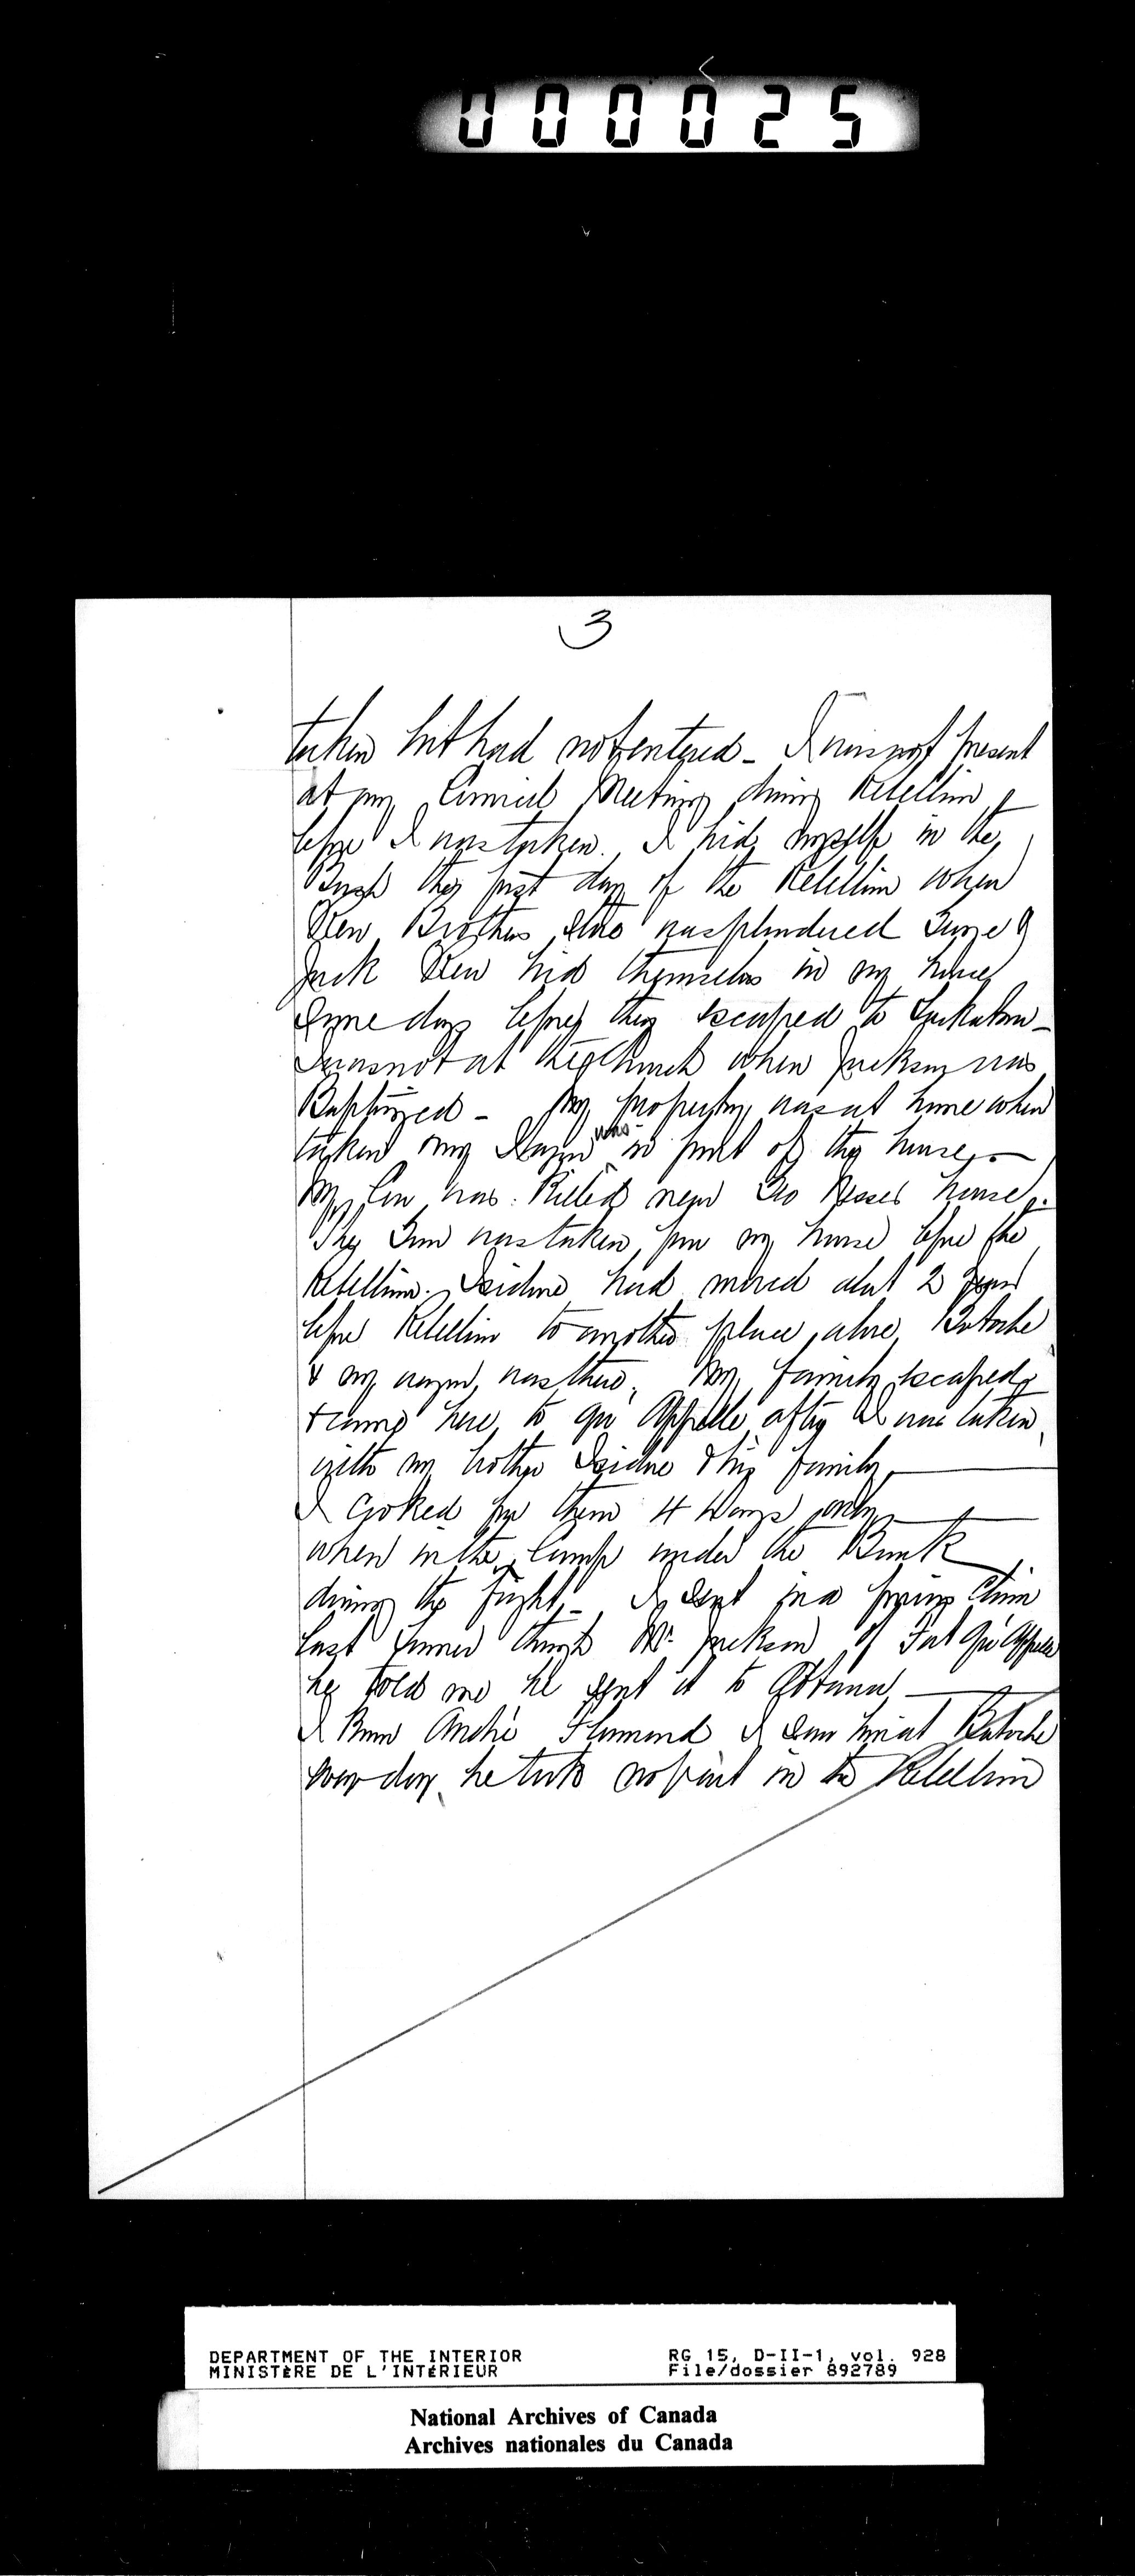 000025
3
taken but had not entered - I was not present
at any Council Meeting during Rebellion
before I was taken. I hid myself in the
Bush the first day of the Rebellion when
Kerr Brothers Store was plundered &
Jack Kerr hid themselves in my house
Some days before they escaped to Saskatoon -
I was not at the Church when Jackson was
Baptized - My property was at home when
taken my was in front of the house -
My Cow was Killed near Geo Ness's house.
The Gun was taken from my house before the
Rebellion. Isidore had moved about 2 years
before Rebellion to another place above Batoche
& my waggon was there. My family escaped
& came here to Qu'Appelle after I was taken
with my brother Isidore & his family
I Cooked for them 4 days only
when in the Camp under the Bank
during the fight - I sent in a Claim
last through Mr. Jackson of Fort Qu'Appelle
he told me he sent it to Ottawa
I Know André I saw him at Batoche
every day he took no part in the Rebellion
DEPARTMENT OF THE INTERIOR RG 15, D-II-1, vol. 928
MINISTÈRE DE L'INTÉRIEUR File/dossier 892789
National Archives of Canada
Archives nationales du Canada